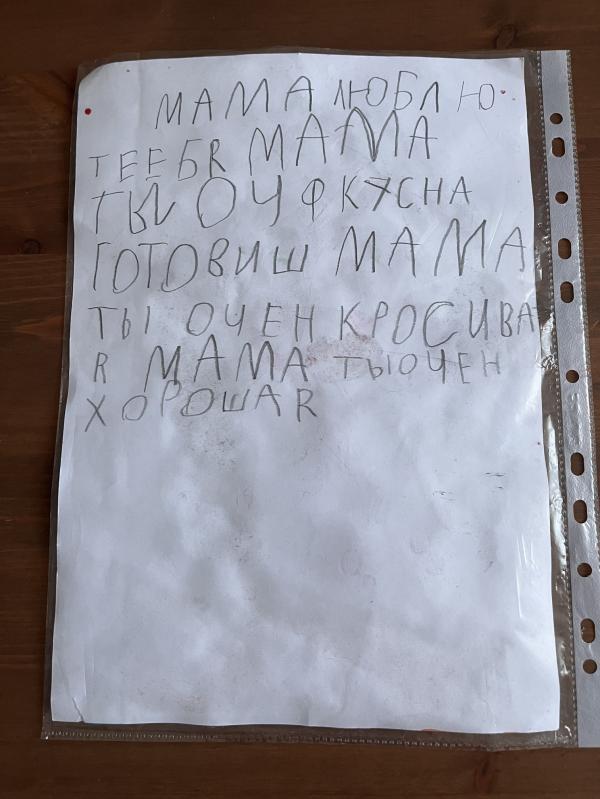 МАМА ЛЮБЛЮ
ТЕЕБЯ МАМА
ТЫ ОЧ ФКУСНА
ГОТОВИШ МАМА
ТЫ ОЧЕН КРОСИВА
Я МАМА ТЫ ОЧЕН
ХОРОШАЯ